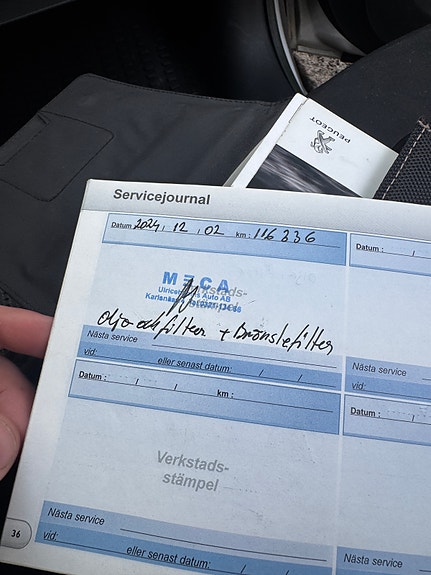 PEUGEOT
Servicejournal
Datum 2024 / 12 / 02 km : 116 336
Datum : /
MECA
Auto AB
Verkstads-
stämpel
Olja och filter + Bränslefilter
Nästa service
vid: eller senast datum: / /
Nästa service
vid:
Datum : / / km :
Datum : /
Verkstads-
stämpel
Nästa service
vid: eller senast datum: / /
Nästa service
vid:
36